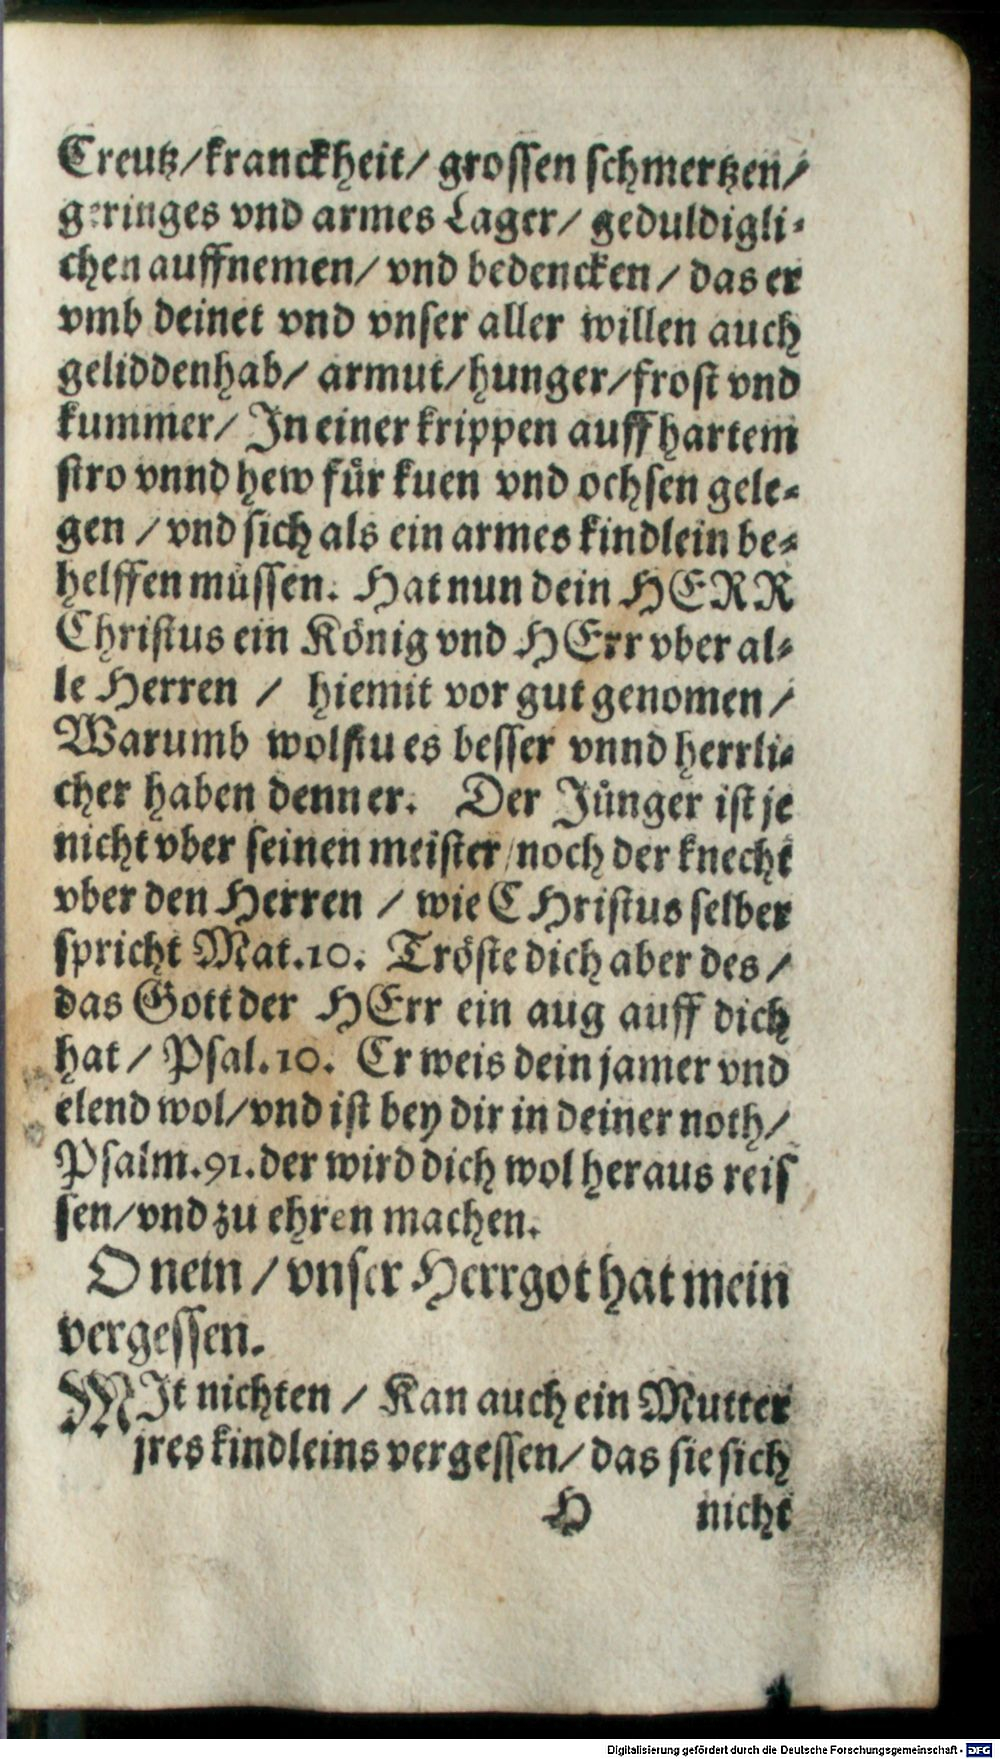 Creutz/kranckheit/ grossen schmertzen/
geringes vnd armes Lager/ geduldigli-
chen auffnemen/ vnd bedencken/ das er
vmb deinet vnd vnser aller willen auch
geliddenhab/ armut/hunger/frost vnd
kummer/ In einer krippen auff hartem
stro vnnd hew für kuen vnd ochsen gele-
gen / vnd sich als ein armes kindlein be-
helffen müssen. Hat nun dein HERR
Christus ein König vnd HErr vber al-
le Herren / hiemit vor gut genomen /
Warumb wolstu es besser vnnd herrli-
cher haben denn er. Der Jünger ist je
nicht vber seinen meister/noch der knecht
vber den Herren / wie CHristus selber
spricht Mat.10. Tröste dich aber des /
das Gott der HErr ein aug auff dich
hat / Psal.10. Er weis dein jamer vnd
elend wol/vnd ist bey dir in deiner noth/
Psalm.91.der wird dich wol heraus reis
sen/vnd zu ehren machen.
O nein / vnser Herrgot hat mein
vergessen.
MIt nichten / Kan auch ein Mutter
jres kindleins vergessen/ das sie sich
H nicht
Digitalisierung gefördert durch die Deutsche Forschungsgemeinschaft - DFG